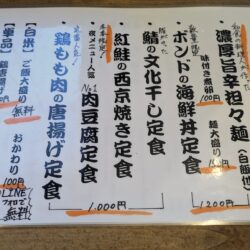 濃厚旨辛担々麺(白飯付
味付き煮卵100円
麺大盛り100円
ボンドの海鮮丼定食
1200円
鯖の文化干し定食
紅鮭の西京焼き定食
夜メニュー人気No1
肉豆腐定食
鶏もも肉の唐揚げ定食
1.000円
【白米】ご飯大盛り無料
おかわり100円
LINE
フォローで
無料
【単品】